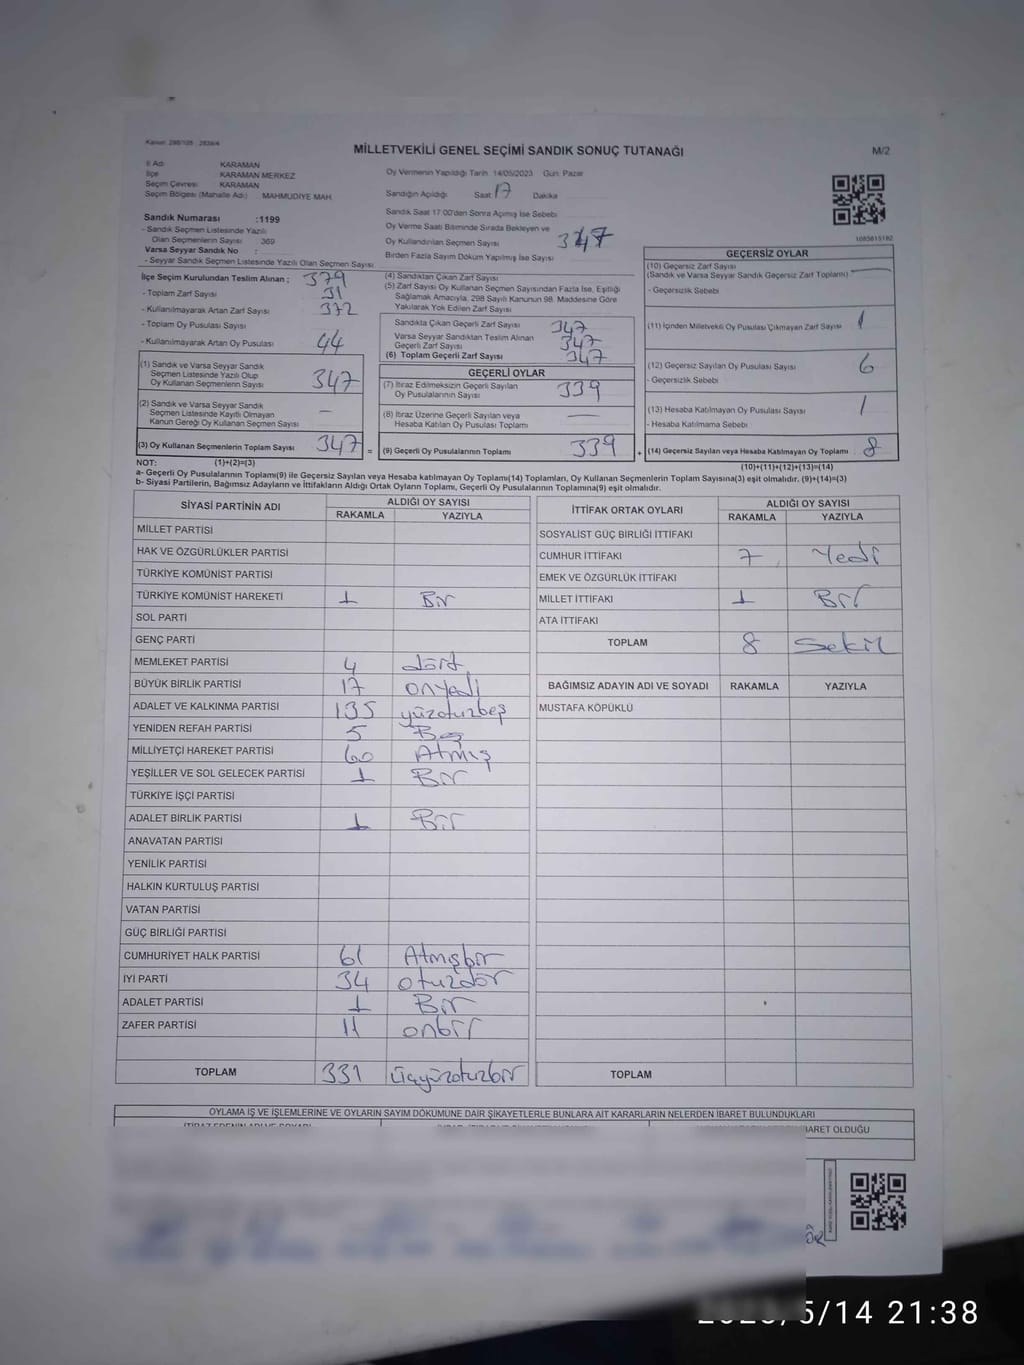 Kanun: 298/105 , 2839/4
MİLLETVEKİLİ GENEL SEÇİMİ SANDIK SONUÇ TUTANAĞI
M/2
İl Adı KARAMAN
İlçe KARAMAN MERKEZ
Seçim Çevresi KARAMAN
Seçim Bölgesi (Mahalle Adı) MAHMUDİYE MAH.
Oy Vermenin Yapıldığı Tarih 14/05/2023 Gün Pazar
Sandığın Açıldığı Saat 17 Dakika
Sandık Saat 17:00'den Sonra Açımış İse Sebebi
Sandık Numarası :1199
- Sandık Seçmen Listesinde Yazılı
Olan Seçmenlerin Sayısı 369
Varsa Seyyar Sandık No :
- Seyyar Sandık Seçmen Listesinde Yazılı Olan Seçmen Sayısı
Oy Verme Saati Bitiminde Sırada Bekleyen ve
Oy Kullandırılan Seçmen Sayısı 347
Birden Fazla Sayım Döküm Yapılmış İse Sayısı
1085815182
İlçe Seçim Kurulundan Teslim Alınan : 379
- Toplam Zarf Sayısı 31
- Kullanılmayarak Artan Zarf Sayısı 372
- Toplam Oy Pusulası Sayısı
- Kullanılmayarak Artan Oy Pusulası 44
(1) Sandık ve Varsa Seyyar Sandık
Seçmen Listesinde Yazılı Olup
Oy Kullanan Seçmenlerin Sayısı 347
(2) Sandık ve Varsa Seyyar Sandık
Seçmen Listesinde Kayıtlı Olmayan
Kanun Gereği Oy Kullanan Seçmen Sayısı –
(3) Oy Kullanan Seçmenlerin Toplam Sayısı 347 =
(4) Sandıktan Çıkan Zarf Sayısı
(5) Zarf Sayısı Oy Kullanan Seçmen Sayısından Fazla İse, Eşitliği
Sağlamak Amacıyla, 298 Sayılı Kanunun 98. Maddesine Göre
Yakılarak Yok Edilen Zarf Sayısı
Sandıkta Çıkan Geçerli Zarf Sayısı 347
Varsa Seyyar Sandıktan Teslim Alınan
Geçerli Zarf Sayısı 347
(6) Toplam Geçerli Zarf Sayısı 347
GEÇERLİ OYLAR
(7) İtiraz Edilmeksizin Geçerli Sayılan
Oy Pusulalarının Sayısı 339
(8) İtiraz Üzerine Geçerli Sayılan veya
Hesaba Katılan Oy Pusulası Toplamı —
(9) Geçerli Oy Pusulalarının Toplamı 339 +
GEÇERSİZ OYLAR
(10) Geçersiz Zarf Sayısı
(Sandık ve Varsa Seyyar Sandık Geçersiz Zarf Toplamı) —
- Geçersizlik Sebebi
(11) İçinden Milletvekili Oy Pusulası Çıkmayan Zarf Sayısı 1
(12) Geçersiz Sayılan Oy Pusulası Sayısı 6
- Geçersizlik Sebebi
(13) Hesaba Katılmayan Oy Pusulası Sayısı 1
- Hesaba Katılmama Sebebi
(14) Geçersiz Sayılan veya Hesaba Katılmayan Oy Toplamı 8
NOT: (1)+(2)=(3)
(10)+(11)+(12)+(13)=(14)
a- Geçerli Oy Pusulalarının Toplamı(9) ile Geçersiz Sayılan veya Hesaba katılmayan Oy Toplamı(14) Toplamları, Oy Kullanan Seçmenlerin Toplam Sayısına(3) eşit olmalıdır. (9)+(14)=(3)
b- Siyasi Partilerin, Bağımsız Adayların ve İttifakların Aldığı Ortak Oyların Toplamı, Geçerli Oy Pusulalarının Toplamına(9) eşit olmalıdır.
SİYASİ PARTİNİN ADI ALDIĞI OY SAYISI
RAKAMLA YAZIYLA
MİLLET PARTİSİ
HAK VE ÖZGÜRLÜKLER PARTİSİ
TÜRKİYE KOMÜNİST PARTİSİ
TÜRKİYE KOMÜNİST HAREKETİ 1 Bir
SOL PARTİ
GENÇ PARTİ
MEMLEKET PARTİSİ 4 dört
BÜYÜK BİRLİK PARTİSİ 17 onyedi
ADALET VE KALKINMA PARTİSİ 135 yüzotuzbeş
YENİDEN REFAH PARTİSİ 5 Beş
MİLLİYETÇİ HAREKET PARTİSİ 60 Atmış
YEŞİLLER VE SOL GELECEK PARTİSİ 1 Bir
TÜRKİYE İŞÇİ PARTİSİ
ADALET BİRLİK PARTİSİ 1 Bir
ANAVATAN PARTİSİ
YENİLİK PARTİSİ
HALKIN KURTULUŞ PARTİSİ
VATAN PARTİSİ
GÜÇ BİRLİĞİ PARTİSİ
CUMHURİYET HALK PARTİSİ 61 Atmışbir
İYİ PARTİ 34 otuzdör
ADALET PARTİSİ 1 Bir
ZAFER PARTİSİ 11 onbir
TOPLAM 331 üçyüzotuzbir
İTTİFAK ORTAK OYLARI ALDIĞI OY SAYISI
RAKAMLA YAZIYLA
SOSYALİST GÜÇ BİRLİĞİ İTTİFAKI
CUMHUR İTTİFAKI 7 Yedi
EMEK VE ÖZGÜRLÜK İTTİFAKI
MİLLET İTTİFAKI 1 Bir
ATA İTTİFAKI
TOPLAM 8 Sekiz
BAĞIMSIZ ADAYIN ADI VE SOYADI RAKAMLA YAZIYLA
MUSTAFA KÖPÜKLÜ
TOPLAM
OYLAMA İŞ VE İŞLEMLERİNE VE OYLARIN SAYIM DÖKÜMÜNE DAİR ŞİKAYETLERLE BUNLARA AİT KARARLARIN NELERDEN İBARET BULUNDUKLARI
İBARET OLDUĞU
5/14 21:38